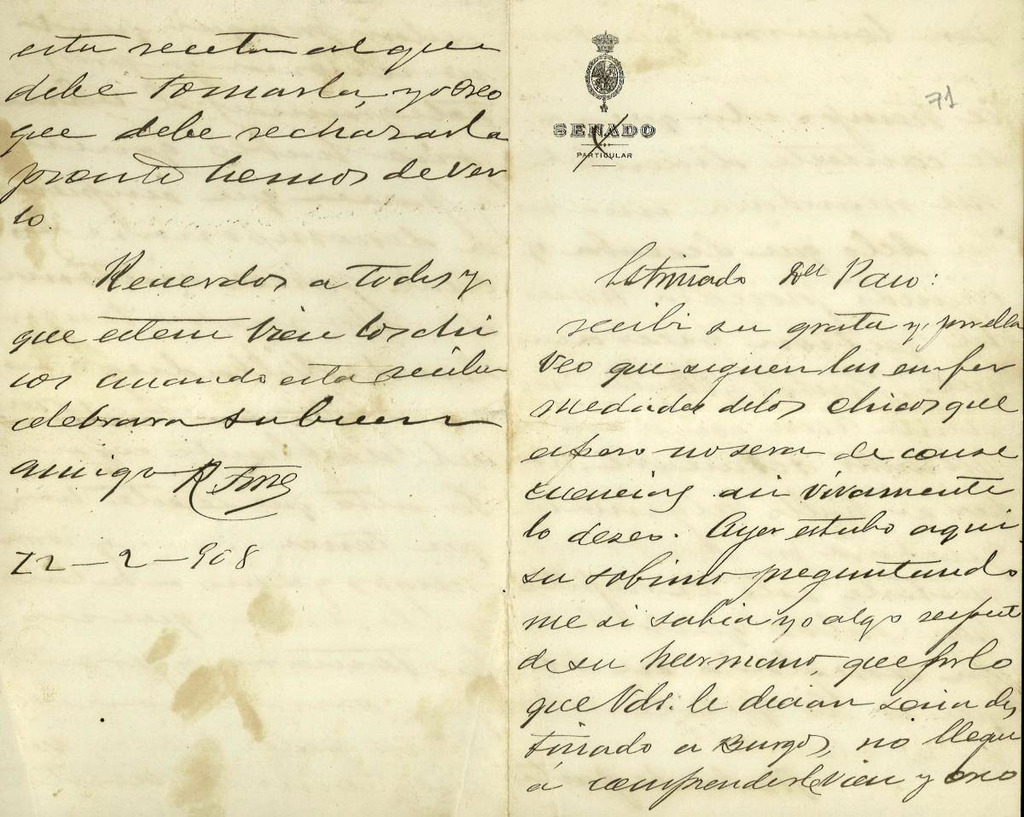 71
SENADO
PARTICULAR
Estimado Dn Paco:
recibi su grata y por ella
veo que siguen las enfer
medades de los chicos que
espero no sera de conse
cuencias asi vivamente
lo deseo. Ayer estubo aqui
su sobrino preguntando
me si sabia yo algo respecto
de su hermano, que por lo
que Vds. le decian seria des
tinado a Burgos, no llegue
á comprenderle vien y creo
esta receta al que
debe tomarla, yo creo
que debe rechazarla
pronto hemos de ver
lo.
Recuerdos a todos y
que esten vien los chi
cos cuando esta reciba
celebrara su buen
amigo R
22-2-908